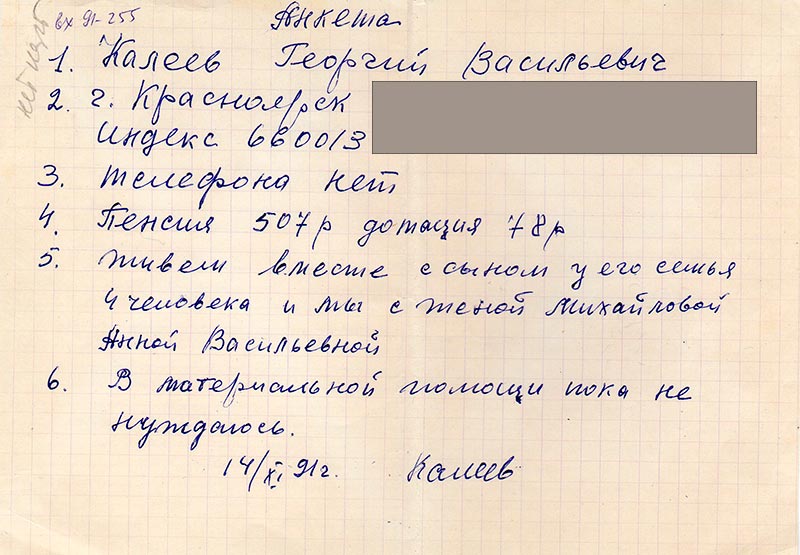 вх 91-255
Анкета
1. Калеев Георгий Васильевич
2. г. Красноярск
Индекс 660013
3. Телефона нет
4. Пенсия 507р дотация 78р
5. Живем вместе с сыном у его семья
4 человека и мы с женой Михайловой
Анной Васильевной
6. В материальной помощи пока не
нуждаюсь.
14/XI 91г. Калеев